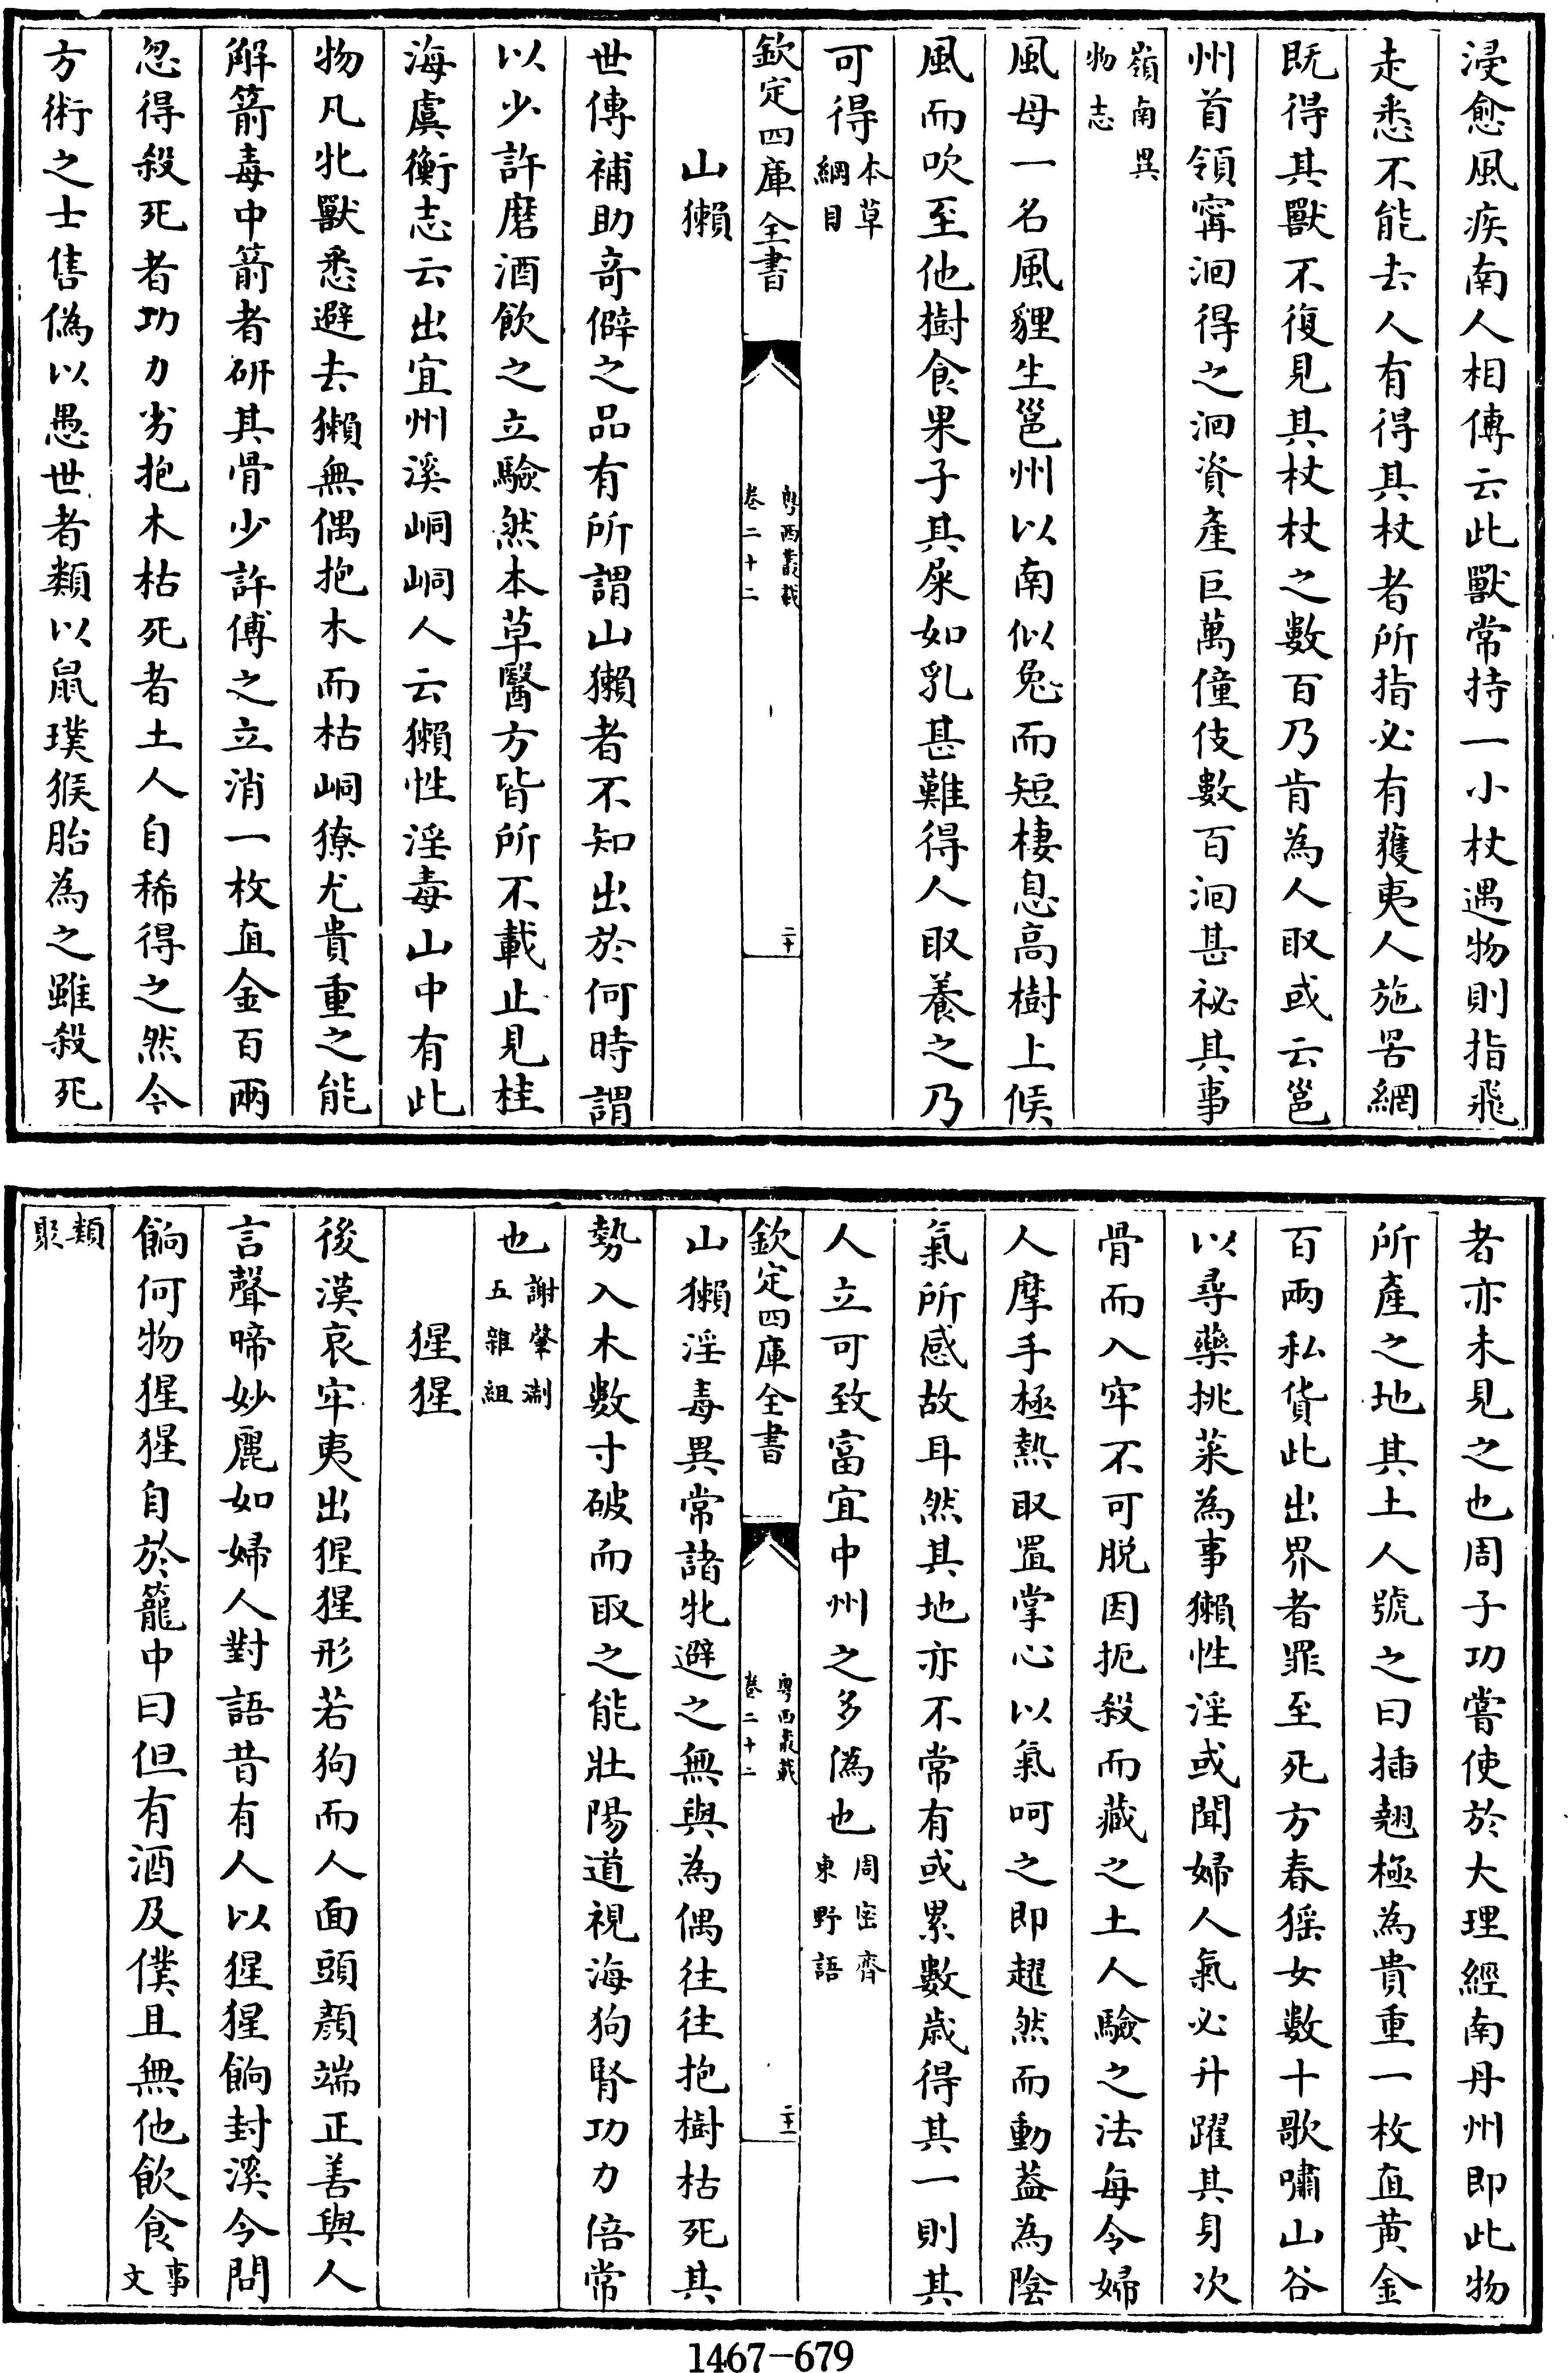 浸愈風疾南人相傳云此獸常持一小杖遇物則指飛
走悉不能去人有得其杖者所指必有獲夷人施罟網
既得其獸不復見其杖杖之數百乃肯為人取或云邕
州首領甯洄得之洄資產巨萬僮伎數百洄甚祕其事
嶺南異
物志
風母一名風貍生邕州以南似兔而短棲息高樹上候
風而吹至他樹食果子其屎如乳甚難得人取養之乃
可得本草
綱目
欽定四庫全書
粵西叢載
卷二十二
二十
山獺
世傳補助奇僻之品有所謂山獺者不知出於何時謂
以少許磨酒飲之立驗然本草醫方皆所不載止見桂
海虞衡志云出宜州溪峒峒人云獺性淫毒山中有此
物凡牝獸悉避去獺無偶抱木而枯峒獠尤貴重之能
解箭毒中箭者研其骨少許傅之立消一枚直金百兩
忽得殺死者功力劣抱木枯死者土人自稀得之然今
方術之士售偽以愚世者類以鼠璞猴胎為之雖殺死
者亦未見之也周子功嘗使於大理經南丹州即此物
所產之地其土人號之曰插翹極為貴重一枚直黃金
百兩私貨此出界者罪至死方春猺女數十歌嘯山谷
以尋藥挑菜為事獺性淫或聞婦人氣必升躍其身次
骨而入牢不可脱因扼殺而藏之土人驗之法每令婦
人摩手極熱取置掌心以氣呵之即趯然而動葢為陰
氣所感故耳然其地亦不常有或累數歲得其一則其
人立可致富宜中州之多偽也周密齊
東野語
欽定四庫全書
粵西叢載
卷二十二
二十一
山獺淫毒異常諸牝避之無與為偶往往抱樹枯死其
勢入木數寸破而取之能壯陽道視海狗腎功力倍常
也謝肇淛
五雜組
猩猩
後漢哀牢夷出猩猩形若狗而人面頭顏端正善與人
言聲啼妙麗如婦人對語昔有人以猩猩餉封溪令問
餉何物猩猩自於籠中曰但有酒及僕且無他飲食事
文
類
聚
1467-679